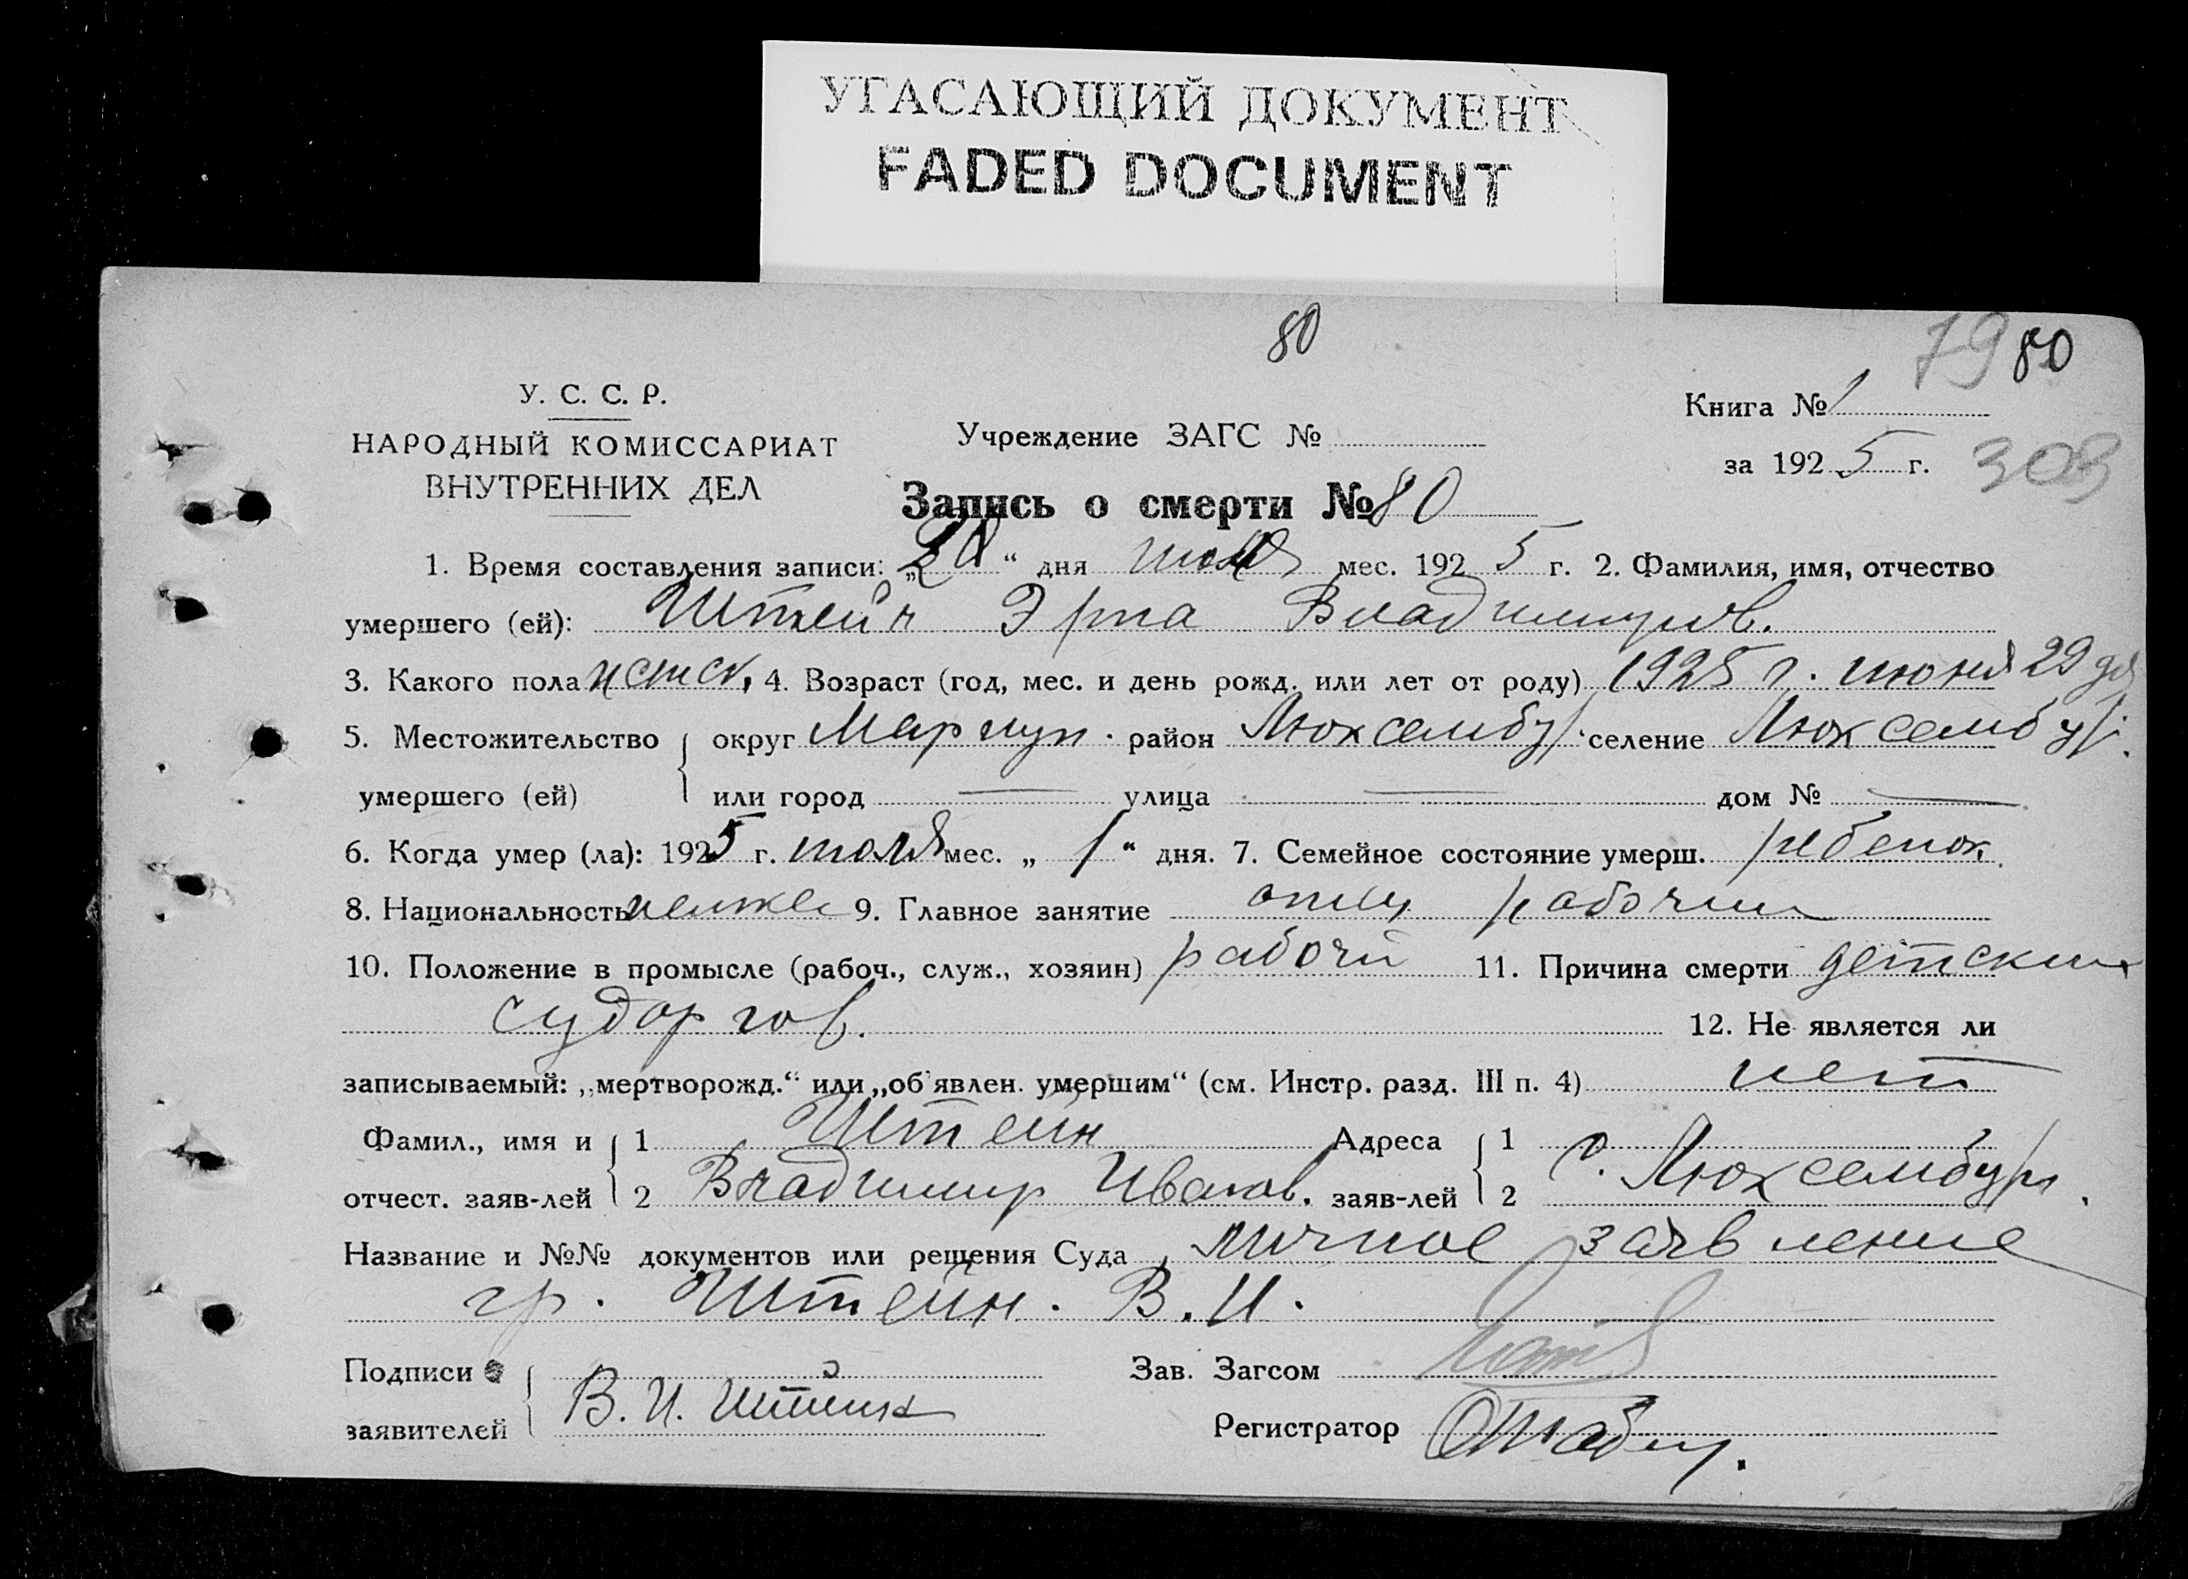 УГАСАЮЩИЙ ДОКУМЕНТ
FADED DOCUMENT
80
79 80
У. С. С. Р.
НАРОДНЫЙ КОМИССАРИАТ
ВНУТРЕННИХ ДЕЛ
Учреждение ЗАГС №
Книга № 1
за 1925 г. 303
Запись о смерти № 80
1. Время составления записи: „ “ дня июля мес. 1925 г. 2. Фамилия, имя, отчество
умершего (ей): Штейн Эрна Владимиров.
3. Какого пола женск, 4. Возраст (год, мес. и день рожд. или лет от роду) 1925 г. июня 29 дня
5. Местожительство округ Мариуп. район Люксембур. селение Люксембур.
умершего (ей) или город — улица — дом № —
6. Когда умер (ла): 1925 г. июля мес. „ 1 “ дня. 7. Семейное состояние умерш. ребенок
8. Национальность немка 9. Главное занятие отец рабочий
10. Положение в промысле (рабоч., служ., хозяин) рабочий 11. Причина смерти детских
судоргов.
12. Не является ли
записываемый: „мертворожд.“ или „об'явлен. умершим“ (см. Инстр. разд. III п. 4) нет
Фамил., имя и 1 Штейн Адреса 1 с. Люксембург.
отчест. заяв-лей 2 Владимир Иванов. заяв-лей 2
Название и №№ документов или решения Суда личное заявление
гр. Штейн. В. И.
Подписи Зав. Загсом
заявителей В. И. Штейн Регистратор